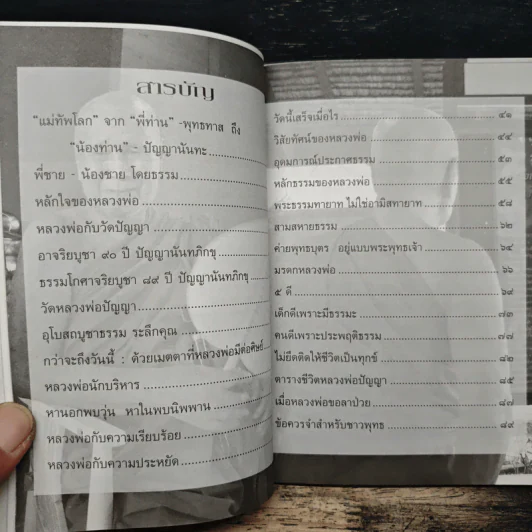 สารบัญ
"แม่ทัพโลก" จาก "พี่ท่าน" -พุทธทาส ถึง
"น้องท่าน" - ปัญญานันทะ
พี่ชาย - น้องชาย โดยธรรม
หลักใจของหลวงพ่อ
หลวงพ่อกับวัดปัญญา
อาจริยบูชา ๙๐ ปี ปัญญานันทภิกขุ
ธรรมโกศาจริยบูชา ๘๙ ปี ปัญญานันทภิกขุ
วัดหลวงพ่อปัญญา
อุโบสถบูชาธรรม ระลึกคุณ
กว่าจะถึงวันนี้ : ด้วยเมตตาที่หลวงพ่อมีต่อศิษย์
หลวงพ่อนักบริหาร
หานอกพบวุ่น หาในพบนิพพาน
หลวงพ่อกับความเรียบร้อย
หลวงพ่อกับความประหยัด
วัดนี้เสร็จเมื่อไร ๔๑
วิสัยทัศน์ของหลวงพ่อ ๔๙
อุดมการณ์ประกาศธรรม ๕๓
หลักธรรมของหลวงพ่อ ๕๕
พระธรรมทายาท ไม่ใช่อามิสทายาท ๕๘
สามสหายธรรม
ค่ายพุทธบุตร อยู่แบบพระพุทธเจ้า ๖๔
มรดกหลวงพ่อ ๖๖
๕ ดี ๖๙
เด็กดีเพราะมีธรรมะ ๗๓
คนดีเพราะประพฤติธรรม ๗๗
ไม่ยึดติดให้ชีวิตเป็นทุกข์ ๘๒
ตารางชีวิตหลวงพ่อปัญญา ๘๕
เมื่อหลวงพ่อขอลาป่วย ๘๗
ข้อควรจำสำหรับชาวพุทธ ๘๙